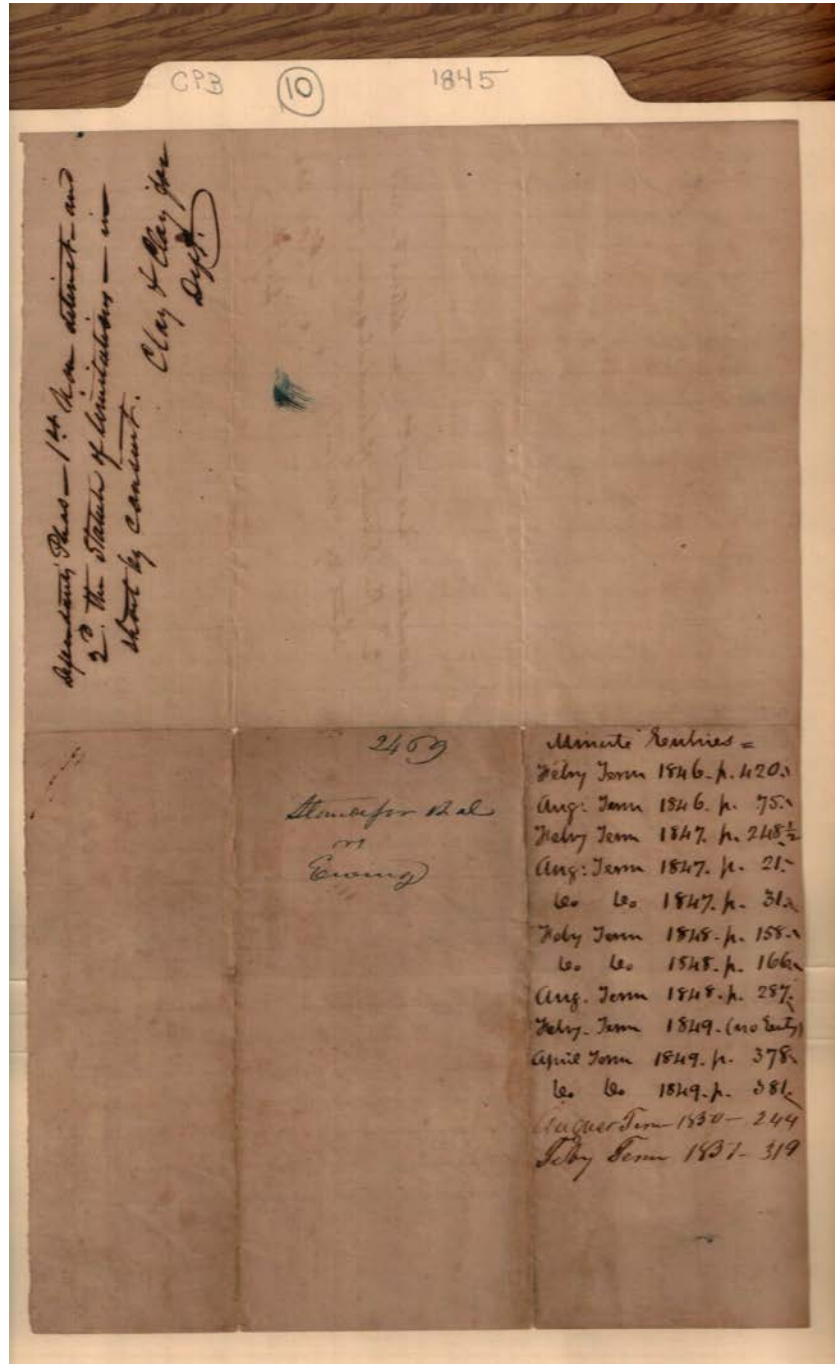 CPB 10 1845
Defendants Pleas — 1st Non detinet — and
2d. the Statute of limitations — in
short by consent.
Clay & Clay for
Deft.
2469
Standefor et al
vs
Ewing
Minute Entries =
Feby Term 1846. p. 420.
Aug: Term 1846. p. 75.
Feby Term 1847. p. 248½
Aug: Term 1847. p. 21.
Do Do 1847. p. 31.
Feby Term 1848. p. 158.
Do Do 1848. p. 166.
Aug. Term 1848. p. 287.
Feby. Term 1849. (no Enty)
April Term 1849. p. 378.
Do Do 1849. p. 381.
August Term 1850 — 244
Feby Term 1851 - 319